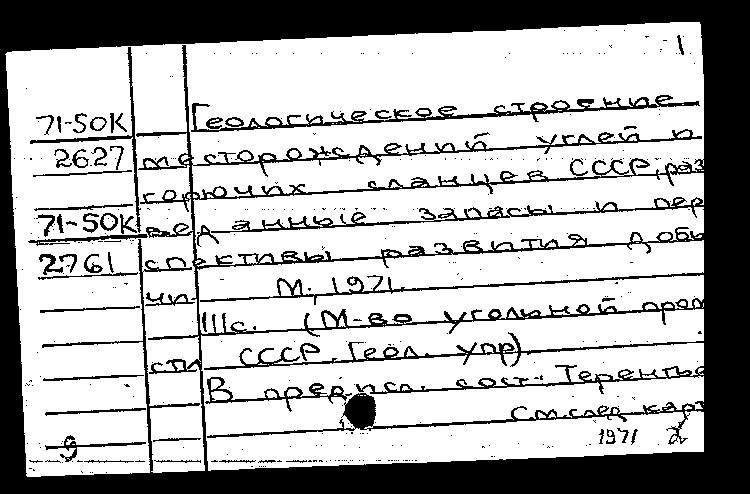 1
71-50К Геологическое строение
2627 месторождений углей и
горючих сланцев СССР, раз
71-50К веданные запасы и пер
2761 спективы развития добы
чи. М., 1971.
111с. (М-во угольной пром
сти СССР. Геол. упр).
В предисл. сост.: Терентье
См. след. карт
9 1971